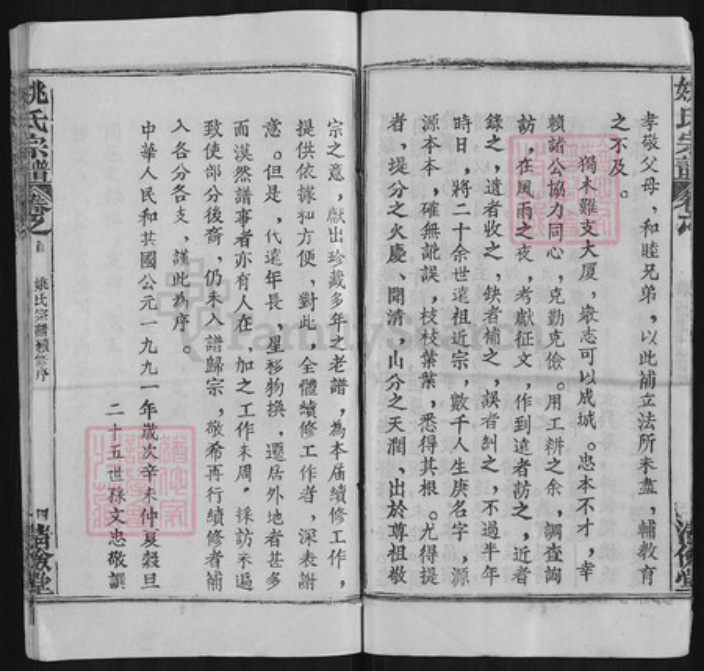 孝敬父母，和睦兄弟，以此補立法所未盡，輔教育
之不及。
獨木難支大厦，衆志可以成城。忠本不才，幸
賴諸公協力同心，克勤克儉。用工耕之余，調查詢
訪，在風雨之夜，考獻征文，作到遠者訪之，近者
錄之，遺者收之，缺者補之，誤者糾之，不過半年
時日，將二十余世遠祖近宗，數千人生庚名字，源
源本本，確無訛誤，枝枝葉葉，悉得其根。尤得提
者，堤分之火慶、開清，山分之天潤、出於尊祖敬
宗之意，獻出珍藏多年之老譜，為本届續修工作，
提供依據和方便，對此，全體續修工作者，深表謝
意。但是，代遠年長，星移物換，遷居外地者甚多
而漠然譜事者亦有人在，加之工作未周，採訪未遍
致使部分後裔，仍未入譜歸宗，敬希再行續修者補
入各分各支，謹此為序。
中華人民和共國公元一九九一年歲次辛未仲夏穀旦
二十五世孫文忠敬譔
姚氏宗譜
卷之首
姚氏宗譜續修序
四
姚氏宗譜
卷之
三
FamilySearch